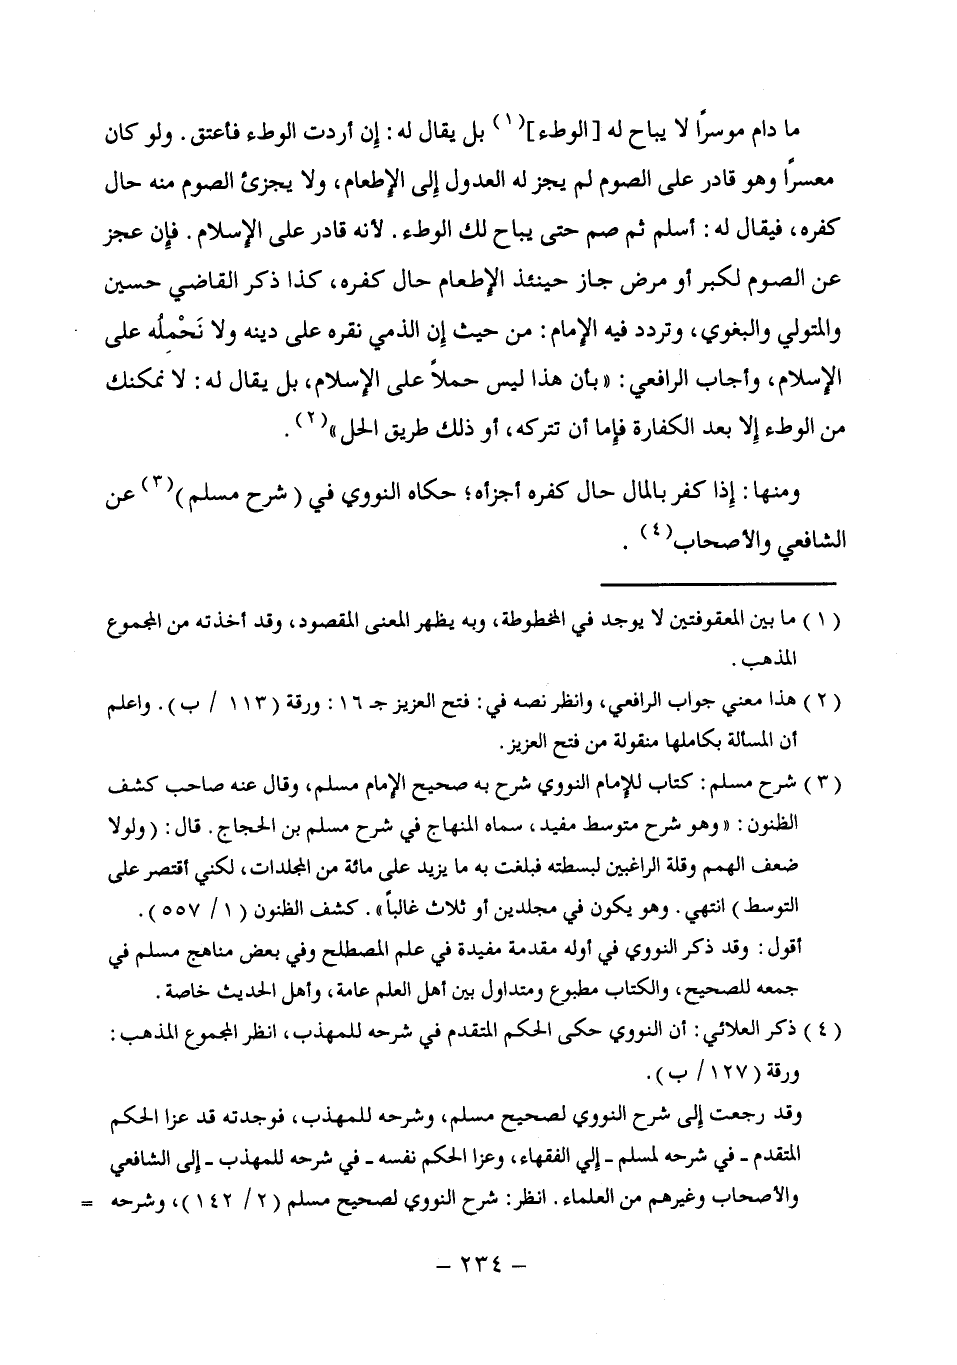 ما دام موسرًا لا يباح له [الوطء](١) بل يقال له: إن أردت الوطء فأعتق. ولو كان
معسرًا وهو قادر على الصوم لم يجز له العدول إلى الإطعام، ولا يجزئ الصوم منه حال
كفره، فيقال له: أسلم ثم صم حتى يباح لك الوطء. لأنه قادر على الإسلام. فإن عجز
عن الصوم لكبر أو مرض جاز حينئذ الإطعام حال كفره، كذا ذكر القاضي حسين
والمتولي والبغوي، وتردد فيه الإمام: من حيث إن الذمي نقره على دينه ولا نَحْملُه على
الإسلام، وأجاب الرافعي: «بأن هذا ليس حملاً على الإسلام، بل يقال له: لا نمكنك
من الوطء إلا بعد الكفارة فإما أن تتركه، أو ذلك طريق الحل»(٢).
ومنها: إذا كفر بالمال حال كفره أجزأه؛ حكاه النووي في (شرح مسلم)(٣) عن
الشافعي والأصحاب(٤).
(١) ما بين المعقوفتين لا يوجد في المخطوطة، وبه يظهر المعنى المقصود، وقد أخذته من المجموع
المذهب.
(٢) هذا معني جواب الرافعي، وانظر نصه في: فتح العزيز جـ ١٦: ورقة (١١٣ / ب). واعلم
أن المسألة بكاملها منقولة من فتح العزيز.
(٣) شرح مسلم: كتاب للإمام النووي شرح به صحيح الإمام مسلم، وقال عنه صاحب كشف
الظنون: «وهو شرح متوسط مفيد، سماه المنهاج في شرح مسلم بن الحجاج. قال: (ولولا
ضعف الهمم وقلة الراغبين لبسطته فبلغت به ما يزيد على مائة من المجلدات، لكني أقتصر على
التوسط) انتهي. وهو يكون في مجلدين أو ثلاث غالباً». كشف الظنون (١ / ٥٥٧).
أقول: وقد ذكر النووي في أوله مقدمة مفيدة في علم المصطلح وفي بعض مناهج مسلم في
جمعه للصحيح، والكتاب مطبوع ومتداول بين أهل العلم عامة، وأهل الحديث خاصة.
(٤) ذكر العلائي: أن النووي حكى الحكم المتقدم في شرحه للمهذب، انظر المجموع المذهب:
ورقة (١٢٧ / ب).
وقد رجعت إلى شرح النووي لصحيح مسلم، وشرحه للمهذب، فوجدته قد عزا الحكم
المتقدم ـ في شرحه لمسلم ـ إلي الفقهاء، وعزا الحكم نفسه ـ في شرحه للمهذب ـ إلى الشافعي
والأصحاب وغيرهم من العلماء. انظر: شرح النووي لصحيح مسلم (٢ / ١٤٢)، وشرحه =
- ٢٣٤ -